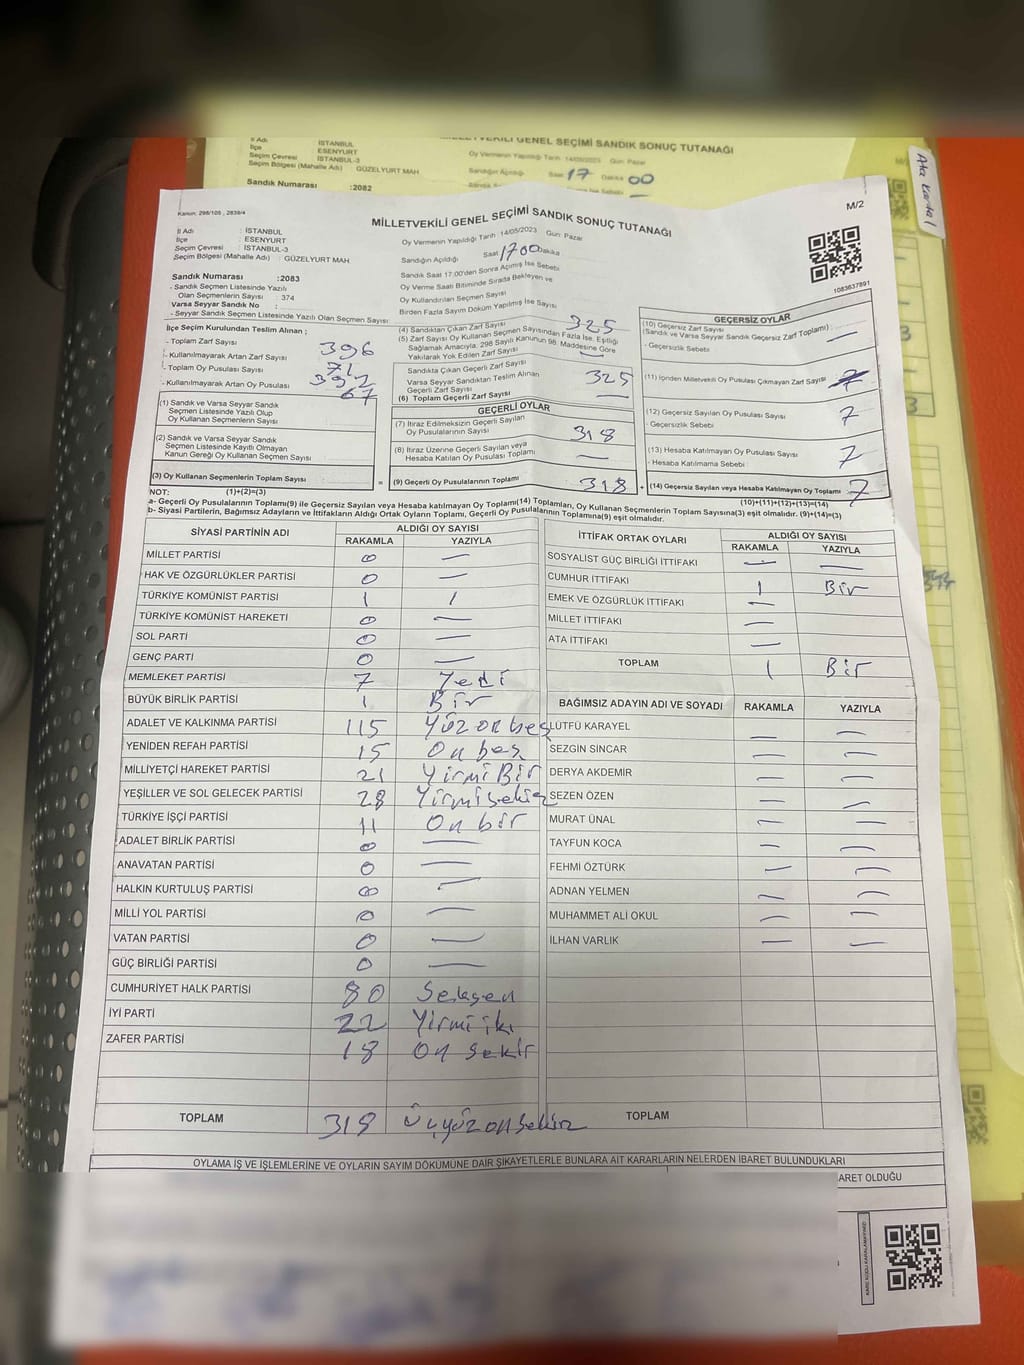 MİLLETVEKİLİ GENEL SEÇİMİ SANDIK SONUÇ TUTANAĞI
İl Adı İSTANBUL
İlçe ESENYURT
Seçim Çevresi İSTANBUL-3
Seçim Bölgesi (Mahalle Adı) GÜZELYURT MAH
Sandık Numarası :2082
Oy Vermenin Yapıldığı Tarih 14/05/2023 Gün: Pazar
Sandığın Açıldığı Saat 17 Dakika 00
Kanun: 298/105 , 2839/4
M/2
MİLLETVEKİLİ GENEL SEÇİMİ SANDIK SONUÇ TUTANAĞI
İl Adı : İSTANBUL
İlçe : ESENYURT
Seçim Çevresi : İSTANBUL-3
Seçim Bölgesi (Mahalle Adı) : GÜZELYURT MAH
Oy Vermenin Yapıldığı Tarih 14/05/2023 Gün: Pazar
Sandığın Açıldığı Saat 17 00 Dakika
Sandık Saat 17.00'den Sonra Açılmış İse Sebebi
Oy Verme Saati Bitiminde Sırada Bekleyen ve
Oy Kullandırılan Seçmen Sayısı
Birden Fazla Sayım Döküm Yapılmış İse Sayısı
1083637891
Sandık Numarası :2083
- Sandık Seçmen Listesinde Yazılı
Olan Seçmenlerin Sayısı : 374
Varsa Seyyar Sandık No :
- Seyyar Sandık Seçmen Listesinde Yazılı Olan Seçmen Sayısı:
İlçe Seçim Kurulundan Teslim Alınan ;
- Toplam Zarf Sayısı 396
- Kullanılmayarak Artan Zarf Sayısı 71
- Toplam Oy Pusulası Sayısı 392
- Kullanılmayarak Artan Oy Pusulası 67
(1) Sandık ve Varsa Seyyar Sandık
Seçmen Listesinde Yazılı Olup
Oy Kullanan Seçmenlerin Sayısı :
(2) Sandık ve Varsa Seyyar Sandık
Seçmen Listesinde Kayıtlı Olmayan
Kanun Gereği Oy Kullanan Seçmen Sayısı :
(3) Oy Kullanan Seçmenlerin Toplam Sayısı :
(1)+(2)=(3)
(4) Sandıktan Çıkan Zarf Sayısı 325
(5) Zarf Sayısı Oy Kullanan Seçmen Sayısından Fazla İse, Eşitliği
Sağlamak Amacıyla, 298 Sayılı Kanunun 98. Maddesine Göre
Yakılarak Yok Edilen Zarf Sayısı —
Sandıkta Çıkan Geçerli Zarf Sayısı 325
Varsa Seyyar Sandıktan Teslim Alınan
Geçerli Zarf Sayısı —
(6) Toplam Geçerli Zarf Sayısı
GEÇERLİ OYLAR
(7) İtiraz Edilmeksizin Geçerli Sayılan
Oy Pusulalarının Sayısı 318
(8) İtiraz Üzerine Geçerli Sayılan veya
Hesaba Katılan Oy Pusulası Toplamı —
(9) Geçerli Oy Pusulalarının Toplamı 318
GEÇERSİZ OYLAR
(10) Geçersiz Zarf Sayısı
(Sandık ve Varsa Seyyar Sandık Geçersiz Zarf Toplamı) : —
- Geçersizlik Sebebi :
(11) İçinden Milletvekili Oy Pusulası Çıkmayan Zarf Sayısı
(12) Geçersiz Sayılan Oy Pusulası Sayısı 7
- Geçersizlik Sebebi :
(13) Hesaba Katılmayan Oy Pusulası Sayısı 7
- Hesaba Katılmama Sebebi :
(14) Geçersiz Sayılan veya Hesaba Katılmayan Oy Toplamı 7
(10)+(11)+(12)+(13)=(14)
NOT:
a- Geçerli Oy Pusulalarının Toplamı(9) ile Geçersiz Sayılan veya Hesaba katılmayan Oy Toplamı(14) Toplamları, Oy Kullanan Seçmenlerin Toplam Sayısına(3) eşit olmalıdır. (9)+(14)=(3)
b- Siyasi Partilerin, Bağımsız Adayların ve İttifakların Aldığı Ortak Oyların Toplamı, Geçerli Oy Pusulalarının Toplamına(9) eşit olmalıdır.
SİYASİ PARTİNİN ADI ALDIĞI OY SAYISI
RAKAMLA YAZIYLA
MİLLET PARTİSİ 0 —
HAK VE ÖZGÜRLÜKLER PARTİSİ 0 —
TÜRKİYE KOMÜNİST PARTİSİ 1 1
TÜRKİYE KOMÜNİST HAREKETİ 0 —
SOL PARTİ 0 —
GENÇ PARTİ 0 —
MEMLEKET PARTİSİ 7 Yedi
BÜYÜK BİRLİK PARTİSİ 1 Bir
ADALET VE KALKINMA PARTİSİ 115 Yüz on beş
YENİDEN REFAH PARTİSİ 15 On beş
MİLLİYETÇİ HAREKET PARTİSİ 21 Yirmi Bir
YEŞİLLER VE SOL GELECEK PARTİSİ 28 Yirmi sekiz
TÜRKİYE İŞÇİ PARTİSİ 11 On bir
ADALET BİRLİK PARTİSİ 0 —
ANAVATAN PARTİSİ 0 —
HALKIN KURTULUŞ PARTİSİ 0 —
MİLLİ YOL PARTİSİ 0 —
VATAN PARTİSİ 0 —
GÜÇ BİRLİĞİ PARTİSİ 0 —
CUMHURİYET HALK PARTİSİ 80 Seksen
İYİ PARTİ 22 Yirmi iki
ZAFER PARTİSİ 18 On sekiz
TOPLAM 318 Üçyüz on sekiz
İTTİFAK ORTAK OYLARI ALDIĞI OY SAYISI
RAKAMLA YAZIYLA
SOSYALİST GÜÇ BİRLİĞİ İTTİFAKI — —
CUMHUR İTTİFAKI 1 Bir
EMEK VE ÖZGÜRLÜK İTTİFAKI —
MİLLET İTTİFAKI —
ATA İTTİFAKI —
TOPLAM 1 Bir
BAĞIMSIZ ADAYIN ADI VE SOYADI RAKAMLA YAZIYLA
LÜTFÜ KARAYEL — —
SEZGİN SİNCAR — —
DERYA AKDEMİR — —
SEZEN ÖZEN — —
MURAT ÜNAL — —
TAYFUN KOCA — —
FEHMİ ÖZTÜRK — —
ADNAN YELMEN — —
MUHAMMET ALİ OKUL — —
İLHAN VARLIK — —
TOPLAM
OYLAMA İŞ VE İŞLEMLERİNE VE OYLARIN SAYIM DÖKÜMÜNE DAİR ŞİKAYETLERLE BUNLARA AİT KARARLARIN NELERDEN İBARET BULUNDUKLARI
ARET OLDUĞU
KARE KODU KARALAMAYINIZ!